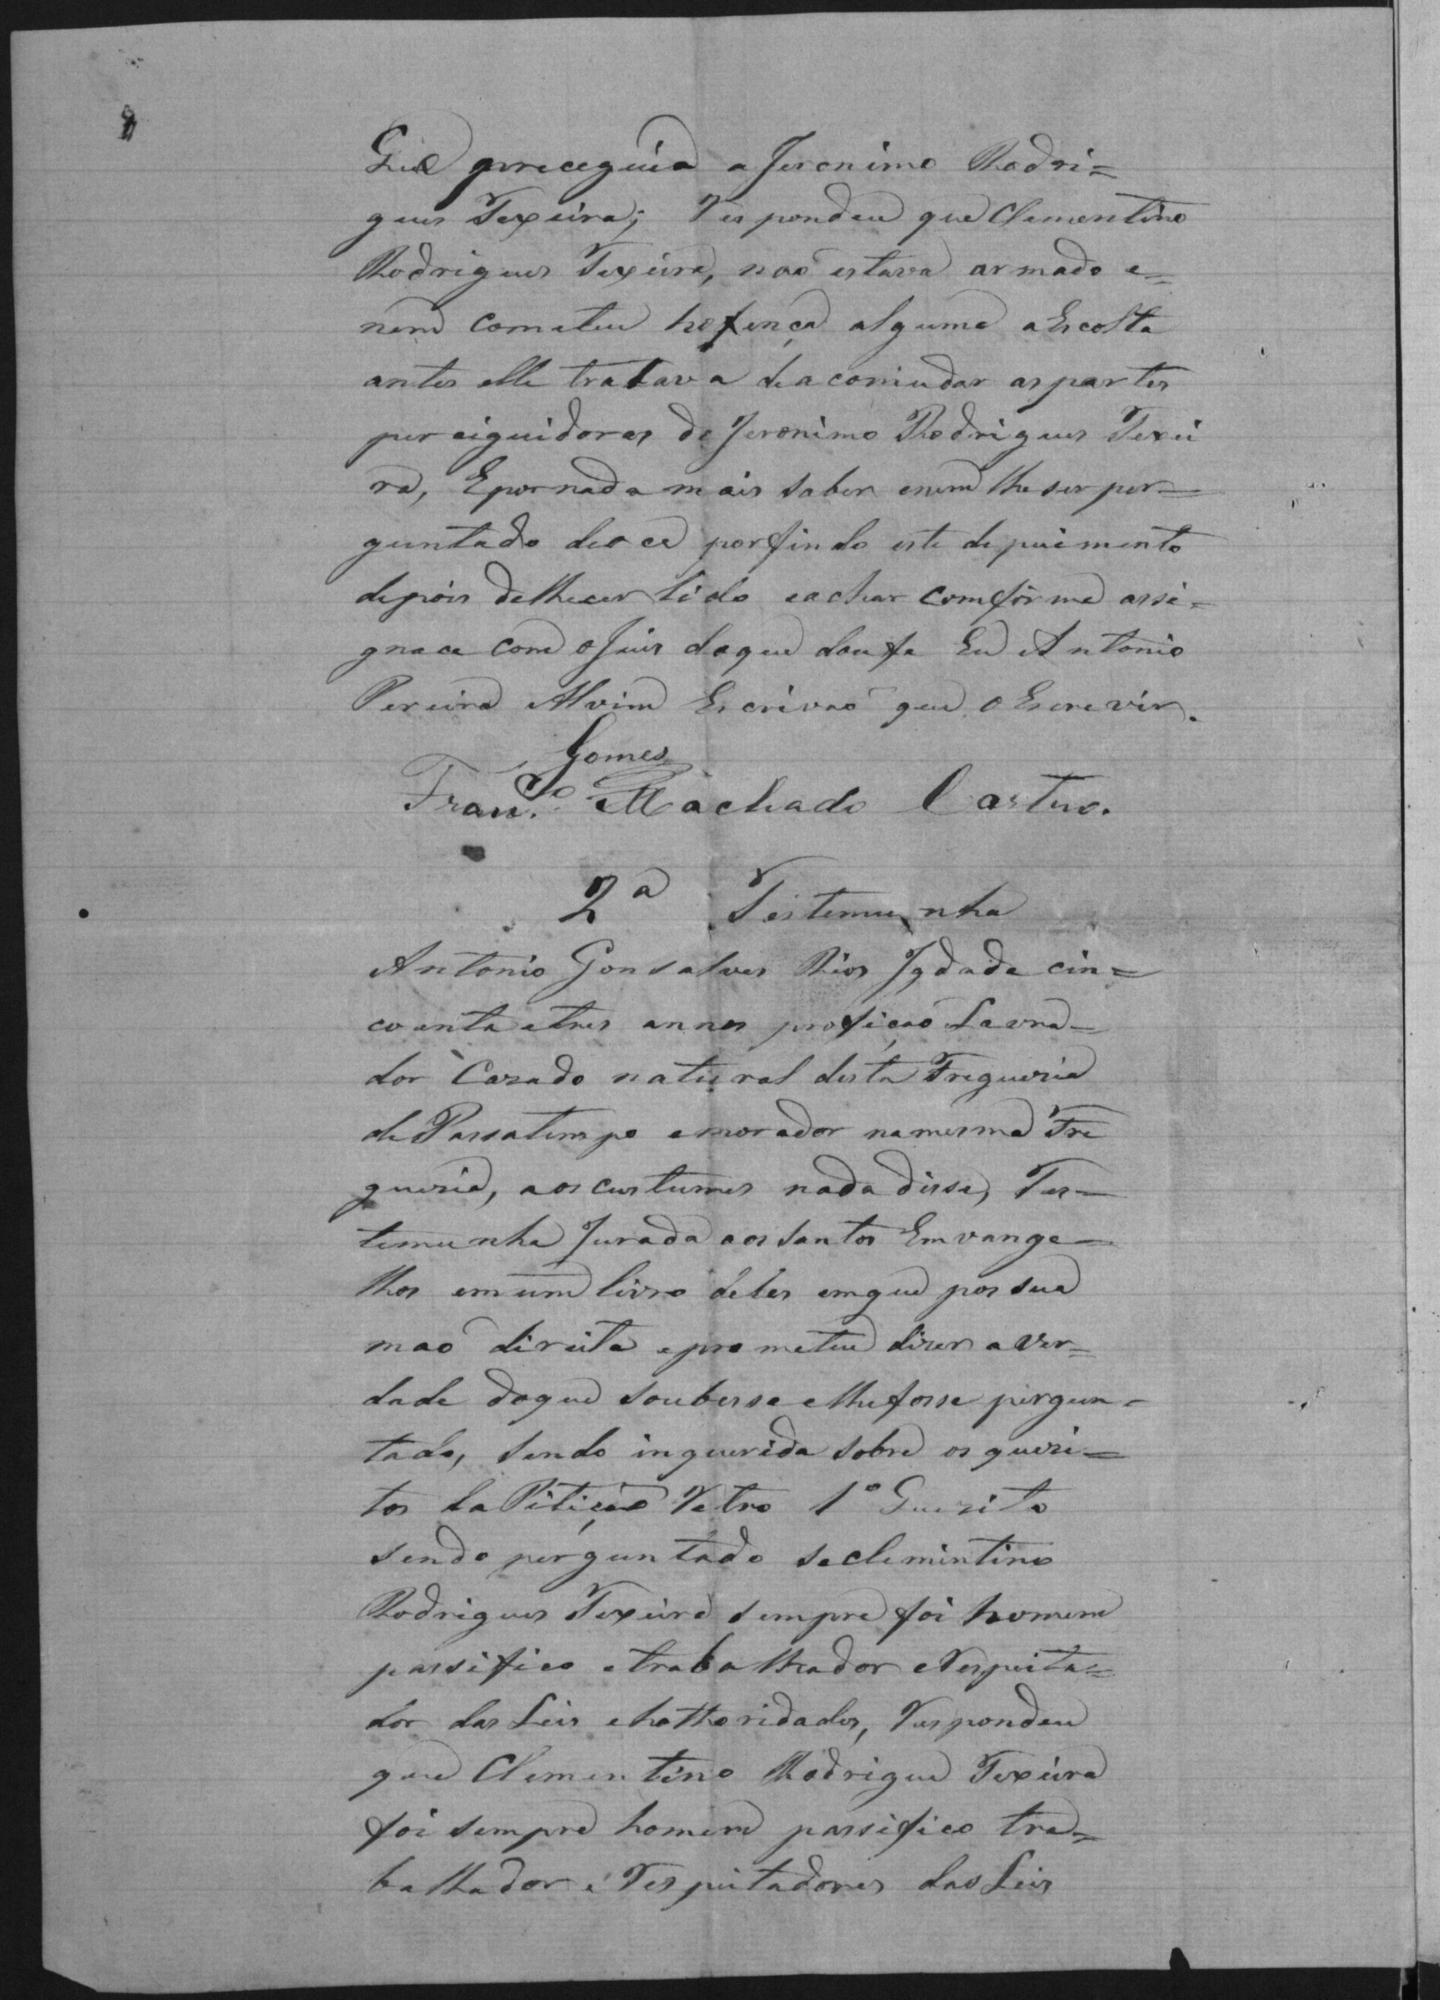 Que preceguia a Jeronimo Rodri=
gues Texeira; Respondeu que Clementino
Rodrigues Texeira, naõ estava armado e=
nem cometeu hofença alguma a Escolta
antes elle tratava de acomudar as partes
perciguidores de Jeronimo Rodrigues Texei
ra, E por nada mais saber enem lhe ser per=
guntado deo ce por findo este depuimento
depois de lhe cer lido e achar comfòrme assi=
gna ce com o Juis do que dou fe Eu Antonio
Pereira Alvim Escrivaõ que o Escrevir.
Gomes
Fran.co Machado Castro.
2ª Testemunha
Antonio Gonsalves Rios Jgdade cin=
coenta e tres annos profiçaõ Lavra=
dor Cazado natural desta Freguezia
de Passatempo e morador na mesma Fre
guezia, aos custumes nada disse, Tes=
temunha Jurada aos Santos Emvange=
lhos em um livro deles em que pos sua
maõ direita e prometeu dizer a ver=
dade do que soubesse e lhe fosse pergun=
tado, sendo inquerida sobre os quezi=
tos da Pitiçaõ Retro 1º Quezito
sendo perguntado se clemintino
Rodrigues Texeira sempre foi homem
passifico e trabalhador e Respeita=
dor das Leis e hothoridades, Respondeu
que Clementino Rodrigue Texeira
foi sempre homem passifico tra=
balhador e Respeitadores das Leis